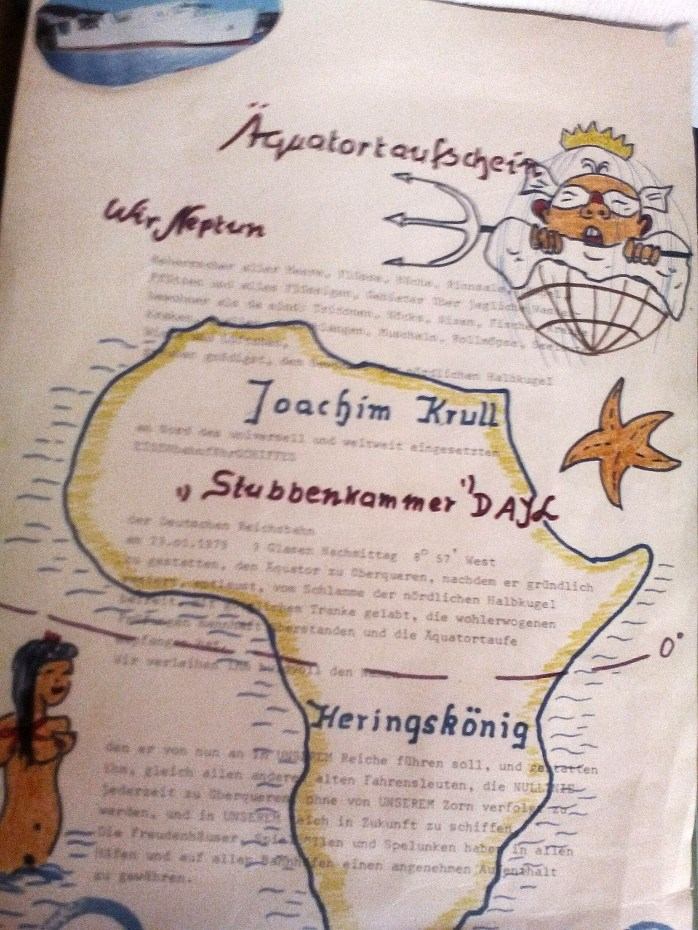 Äquatortaufschein
Wir Neptun
Beherrscher aller Meere, Flüsse, Bäche, Rinnsale,
Pfützen und alles Flüssigen, Gebieter über jegliche
bewohner als da sind: Nixen, Fische
Kraken, Muscheln, Rollmöpse,
geruhen gnädigst, den nördlichen Halbkugel
Joachim Krull
an Bord des universell und weltweit eingesetzten
EISENbahnfährSCHIFFES
"Stubbenkammer" DAYL
der Deutschen Reichsbahn
am 29.01.1979 7 Glasen Nachmittag 8° 57' West
zu gestatten, den Äquator zu überqueren, nachdem er gründlich
entlaust, vom Schlamme der nördlichen Halbkugel
Tranke gelabt, die wohlerwogenen
überstanden und die Äquatortaufe
empfangen
Wir verleihen ihm den
0°
Heringskönig
den er von nun an in UNSEREM Reiche führen soll, und gestatten
ihm, gleich allen anderen alten Fahrensleuten, die NULLINIE
jederzeit zu überqueren ohne von UNSEREM Zorn verfolgt zu
werden, und in UNSEREM Reich in Zukunft zu schiffen.
Die Freudenhäuser, Spielhöllen und Spelunken haben in allen
Häfen und auf allen Bahnhöfen einen angenehmen Aufenthalt
zu gewähren.